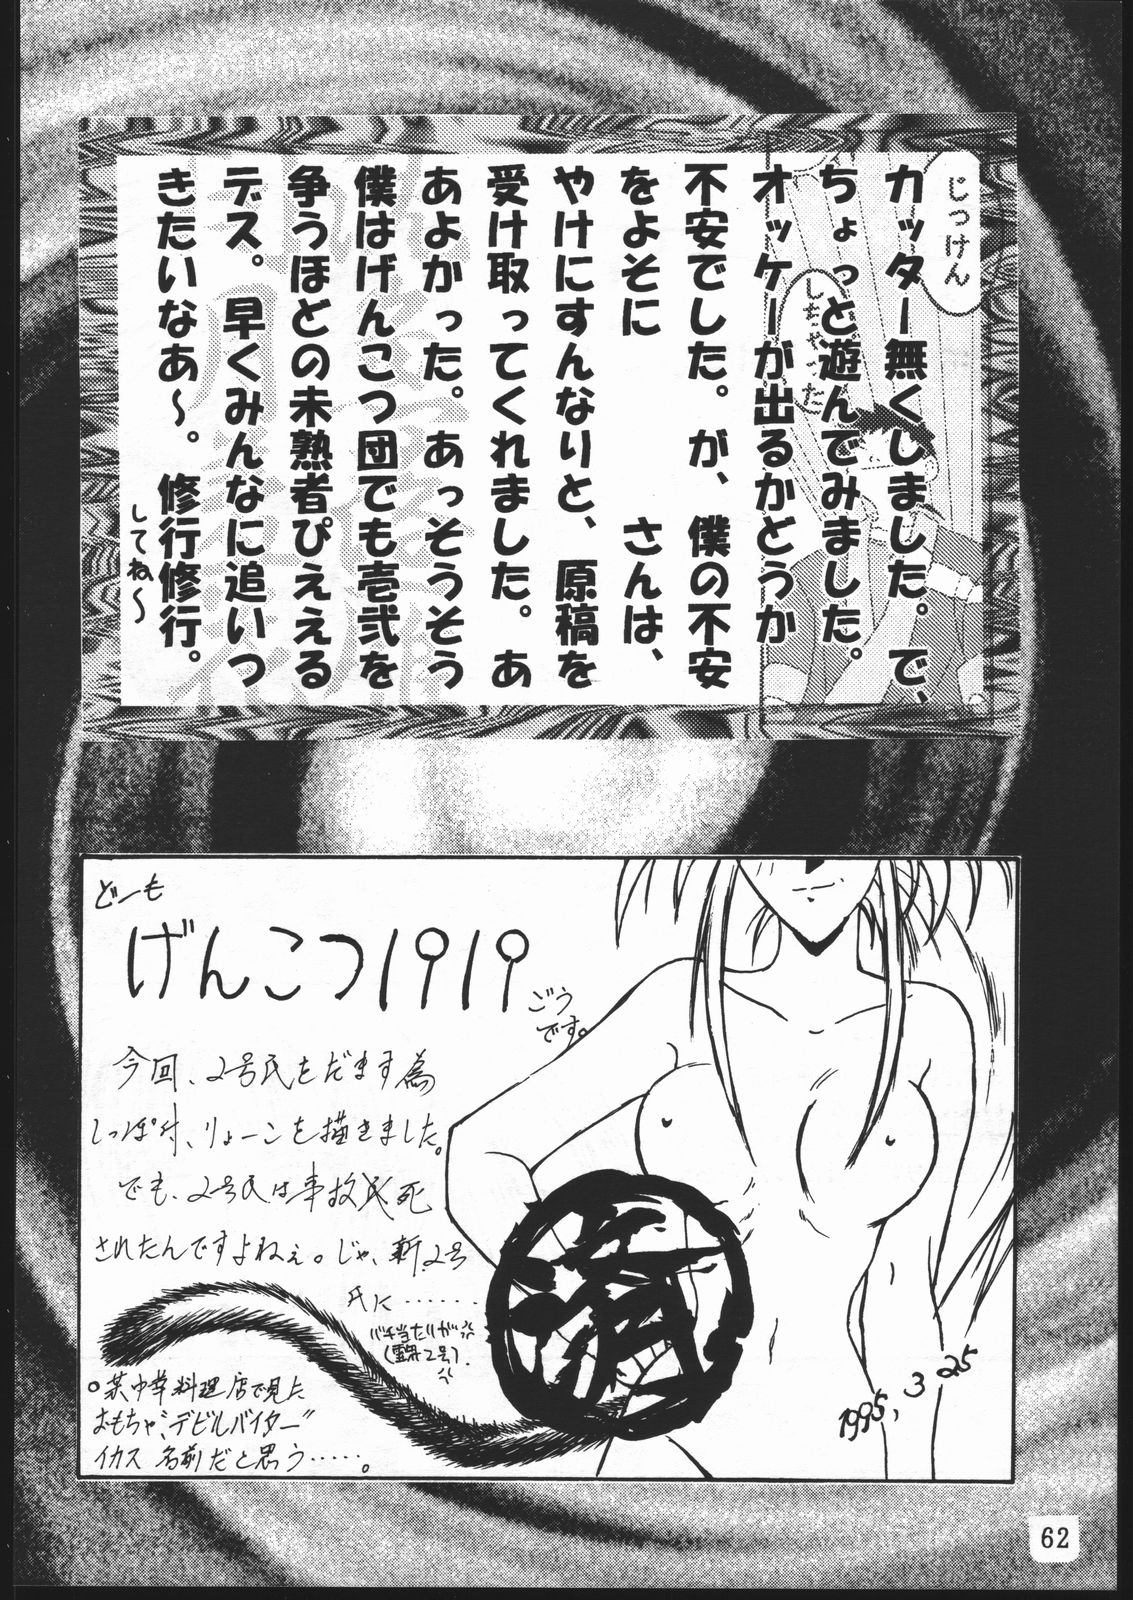 じっけん
しちゃった
カッター無くしました。で、
ちょっと遊んでみました。
オッケーが出るかどうか
不安でした。が、僕の不安
をよそに　　　さんは、
やけにすんなりと、原稿を
受け取ってくれました。あ
あよかった。あっそうそう
僕はげんこつ団でも壱弐を
争うほどの未熟者ぴええる
デス。早くみんなに追いつ
きたいなあ～。修行修行。
してね～
どーも
げんこつ1919
ごう
です。
今回、2号氏をだます為
しっぽ付、りょーこを描きました。
でも、2号氏は事故死
されたんですよねぇ。じゃ、新2号
氏に……
バチ当たりが
(霊界2号)
。某中華料理店で見た
おもちゃ“デビルバイター”
イカス名前だと思う……。
済
1995,3,25
62